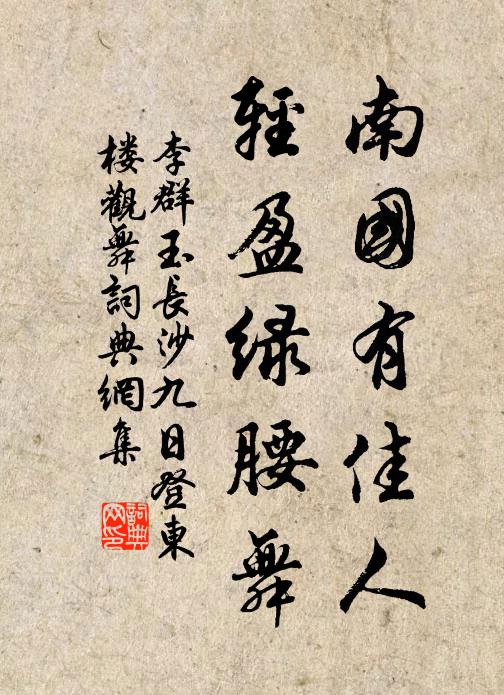 南國有佳人
輕盈綠腰舞
李群玉長沙九日登東
楼觀舞詞典網集
詞典
网印